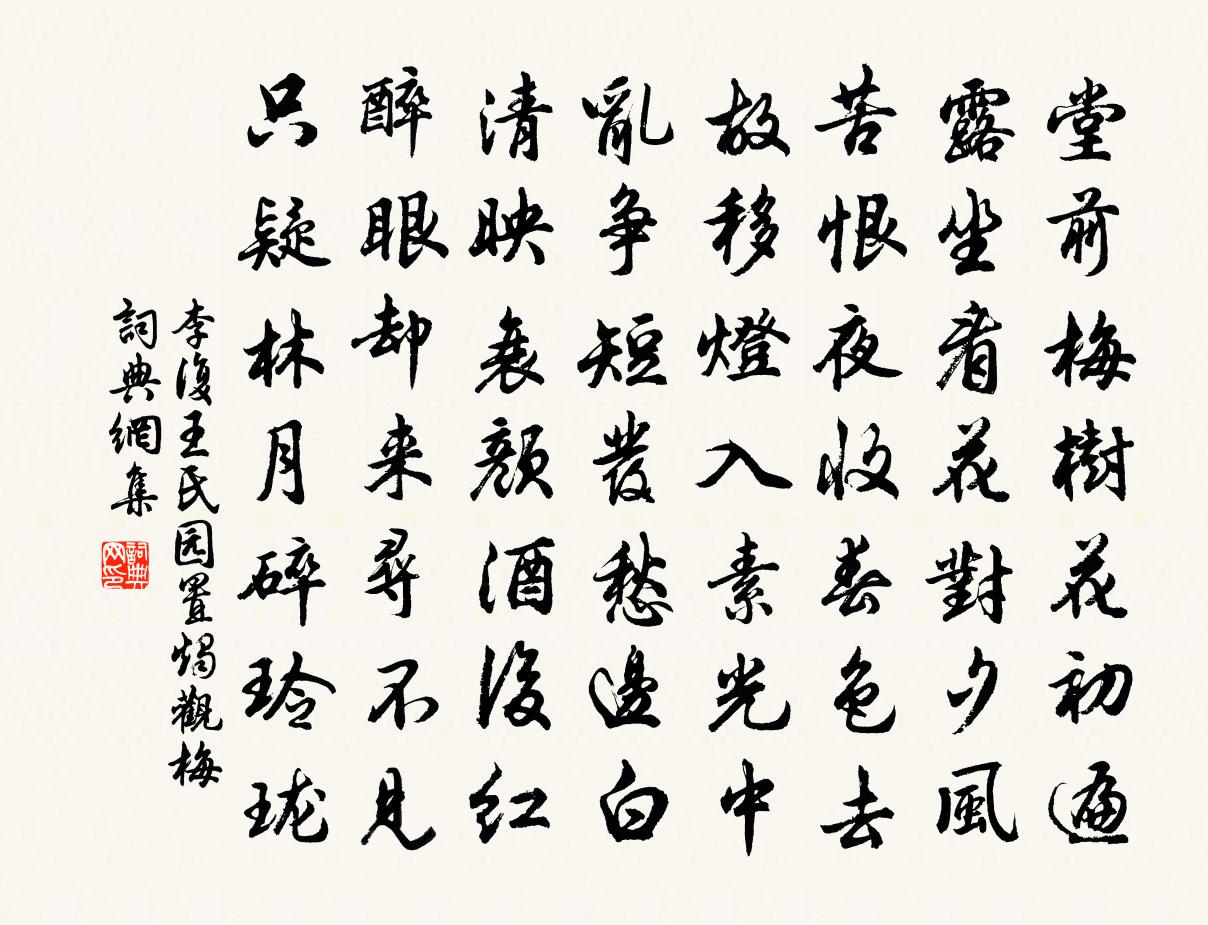 堂前梅樹花初遍
露坐看花對夕風
苦恨夜收春色去
故移燈入素光中
亂争短髮愁邊白
清映衰顔酒後红
醉眼却来尋不見
只疑林月碎玲珑
李復王氏园置燭觀梅
詞典網集
詞典网印